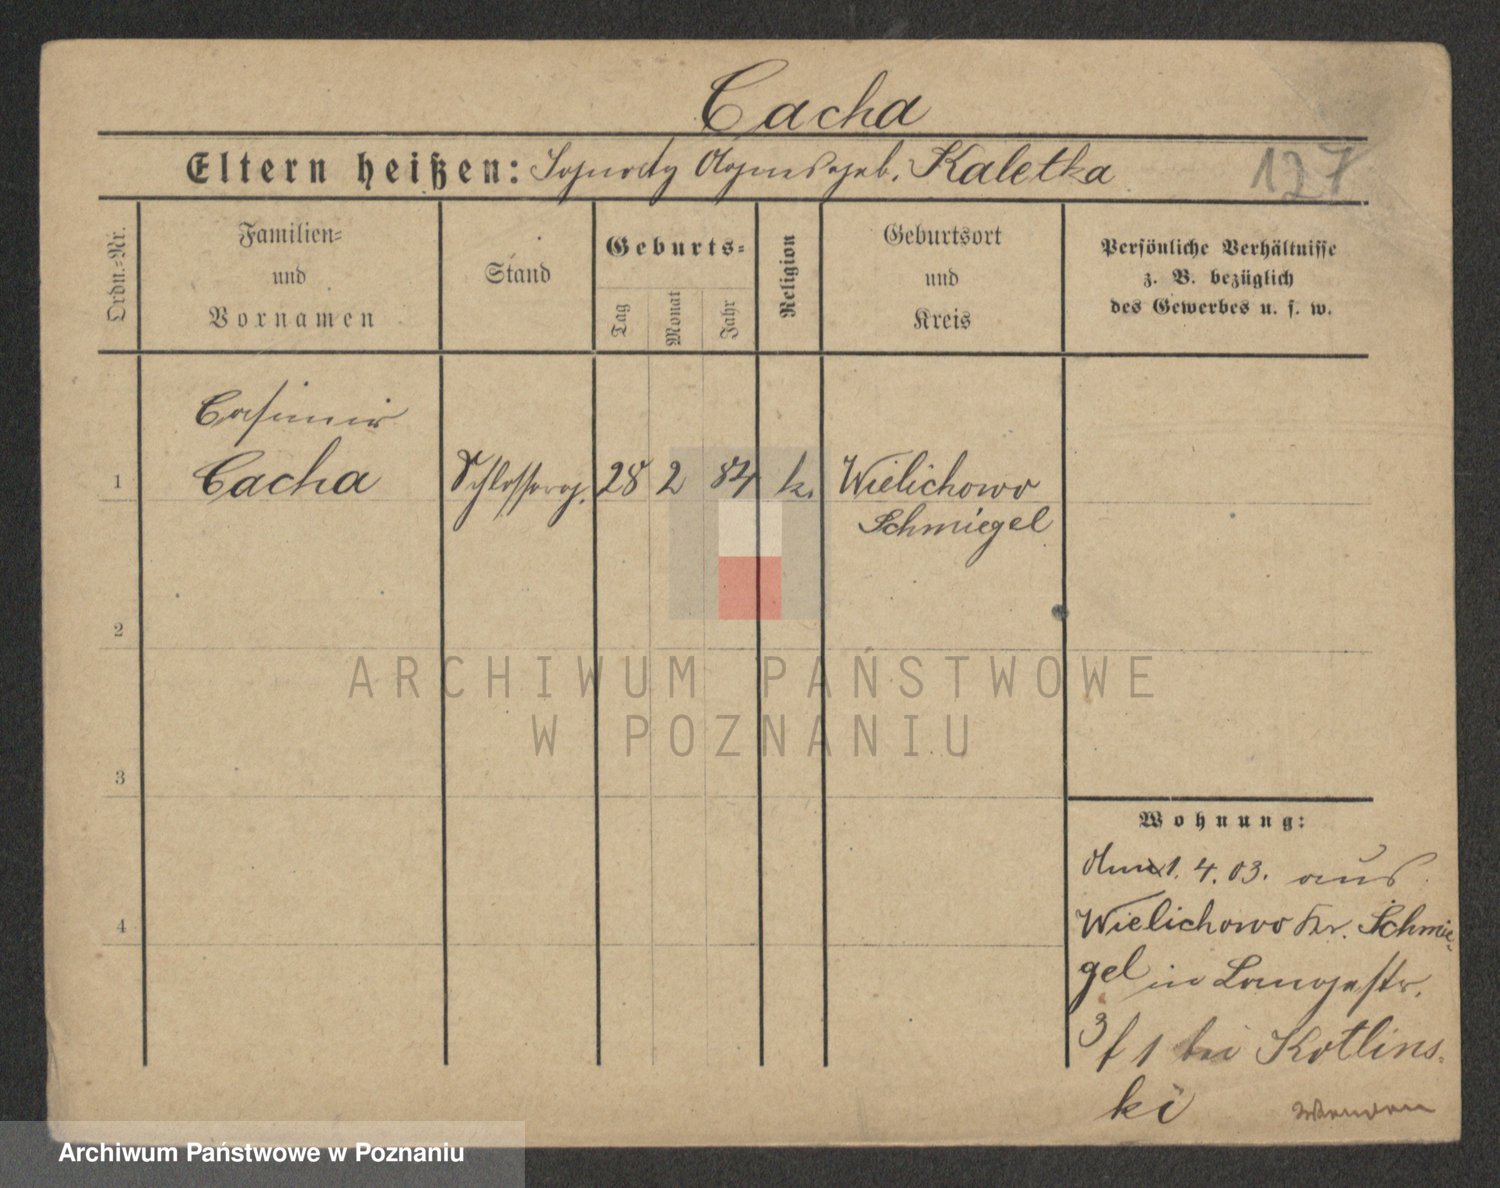 Cacha
Eltern heißen: Agnes geb. Kaletka
127
Ordn.-Nr.
Familien-
und
Vornamen
Stand
Geburts-
Tag
Monat
Jahr
Religion
Geburtsort
und
Kreis
Persönliche Verhältnisse
z. B. bezüglich
des Gewerbes u. s. w.
Casimir
1 Cacha Schlosserg. 28 2 84 k. Wielichowo
Schmiegel
2
3
4
ARCHIWUM PAŃSTWOWE
W POZNANIU
Wohnung:
1. 4. 03. aus
Wielichowo Kr. Schmie-
gel in Langestr.
3 f 1 bei Kotlins-
ki
Wenden
Archiwum Państwowe w Poznaniu